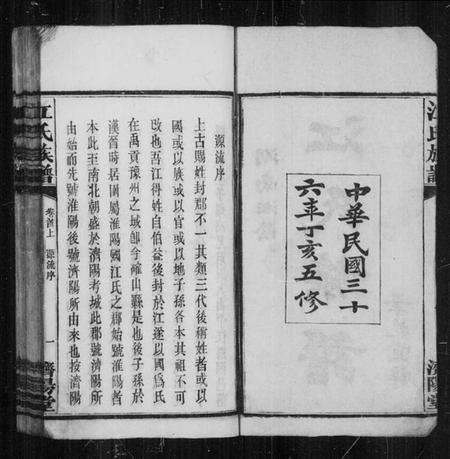 江氏族譜
濟陽堂
中華民國三十
六年丁亥五修
源流序
上古賜姓封郡不一其類三代後稱姓者或以
國或以族或以官或以地子孫各本其祖不可
改也吾江得姓自伯益後封於江遂以國為氏
在禹貢豫州之域卽今確山縣是也後子孫於
漢晉時居圉屬淮陽國江氏之郡始號淮陽者
本此至南北朝盛於濟陽考城此郡號濟陽所
由始而先號淮陽後號濟陽所由來也按濟陽
江氏族譜
卷首上
源流序
一
濟陽堂